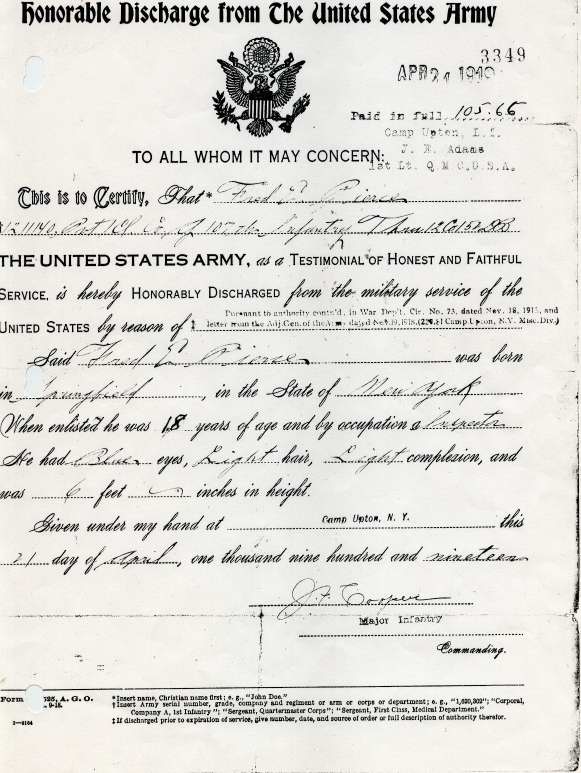 Honorable Discharge from The United States Army
3349
APR 21 1919
Paid in full 105.65
Camp Upton, L.I.
J. E. Adams
1st Lt. Q M C. U. S. A.
TO ALL WHOM IT MAY CONCERN:
This is to Certify, That* Fred E. Pierce
1211140, Pvt 1Cl. Co. G 105th Infantry 12 Co 152 DB
THE UNITED STATES ARMY, as a TESTIMONIAL OF HONEST AND FAITHFUL
SERVICE, is hereby HONORABLY DISCHARGED from the military service of the
UNITED STATES by reason of ‡ Pursuant to authority contd. in War Dep't. Cir. No. 73, dated Nov. 18, 1918, and
letter from the Adj. Gen. of the Army dated Nov. 19, 1918, Camp Upton, N.Y. Misc. Div.)
Said Fred E. Pierce was born
in Springfield, in the State of New York
When enlisted he was 18 years of age and by occupation a Inspector
He had Blue eyes, Light hair, Light complexion, and
was 6 feet inches in height.
Given under my hand at Camp Upton, N. Y. this
21 day of April, one thousand nine hundred and nineteen
J. F. Cooper
Major Infantry
Commanding.
Form 525, A. G. O.
9-18.
3—3164
*Insert name, Christian name first; e. g., "John Doe."
†Insert Army serial number, grade, company and regiment or arm or corps or department; e. g., "1,620,302"; "Corporal,
Company A, 1st Infantry"; "Sergeant, Quartermaster Corps"; "Sergeant, First Class, Medical Department."
‡If discharged prior to expiration of service, give number, date, and source of order or full description of authority therefor.